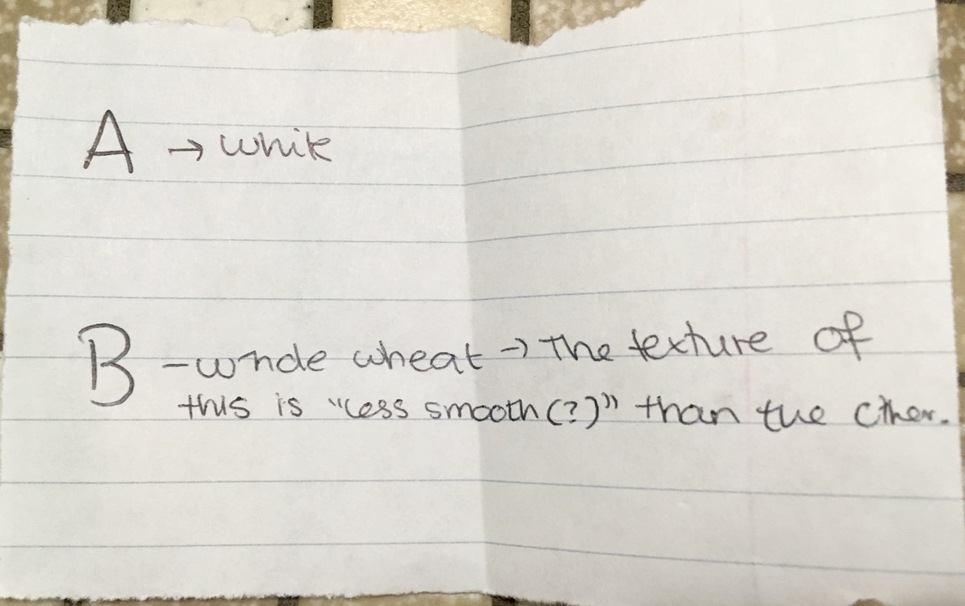 A → white
B - whole wheat → The texture of
this is "less smooth (?)" than the other.